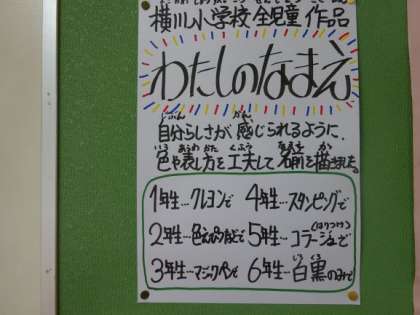 横川小学校全児童作品
わたしのなまえ
自分らしさが感じられるように、
色や表し方を工夫して名前を描きました。
1年生…クレヨンで 4年生…スタンピングで
2年生…色えんぴつなどで 5年生…コラージュで
(はりつけ)
3年生…マジックペンで 6年生…白黒のみで